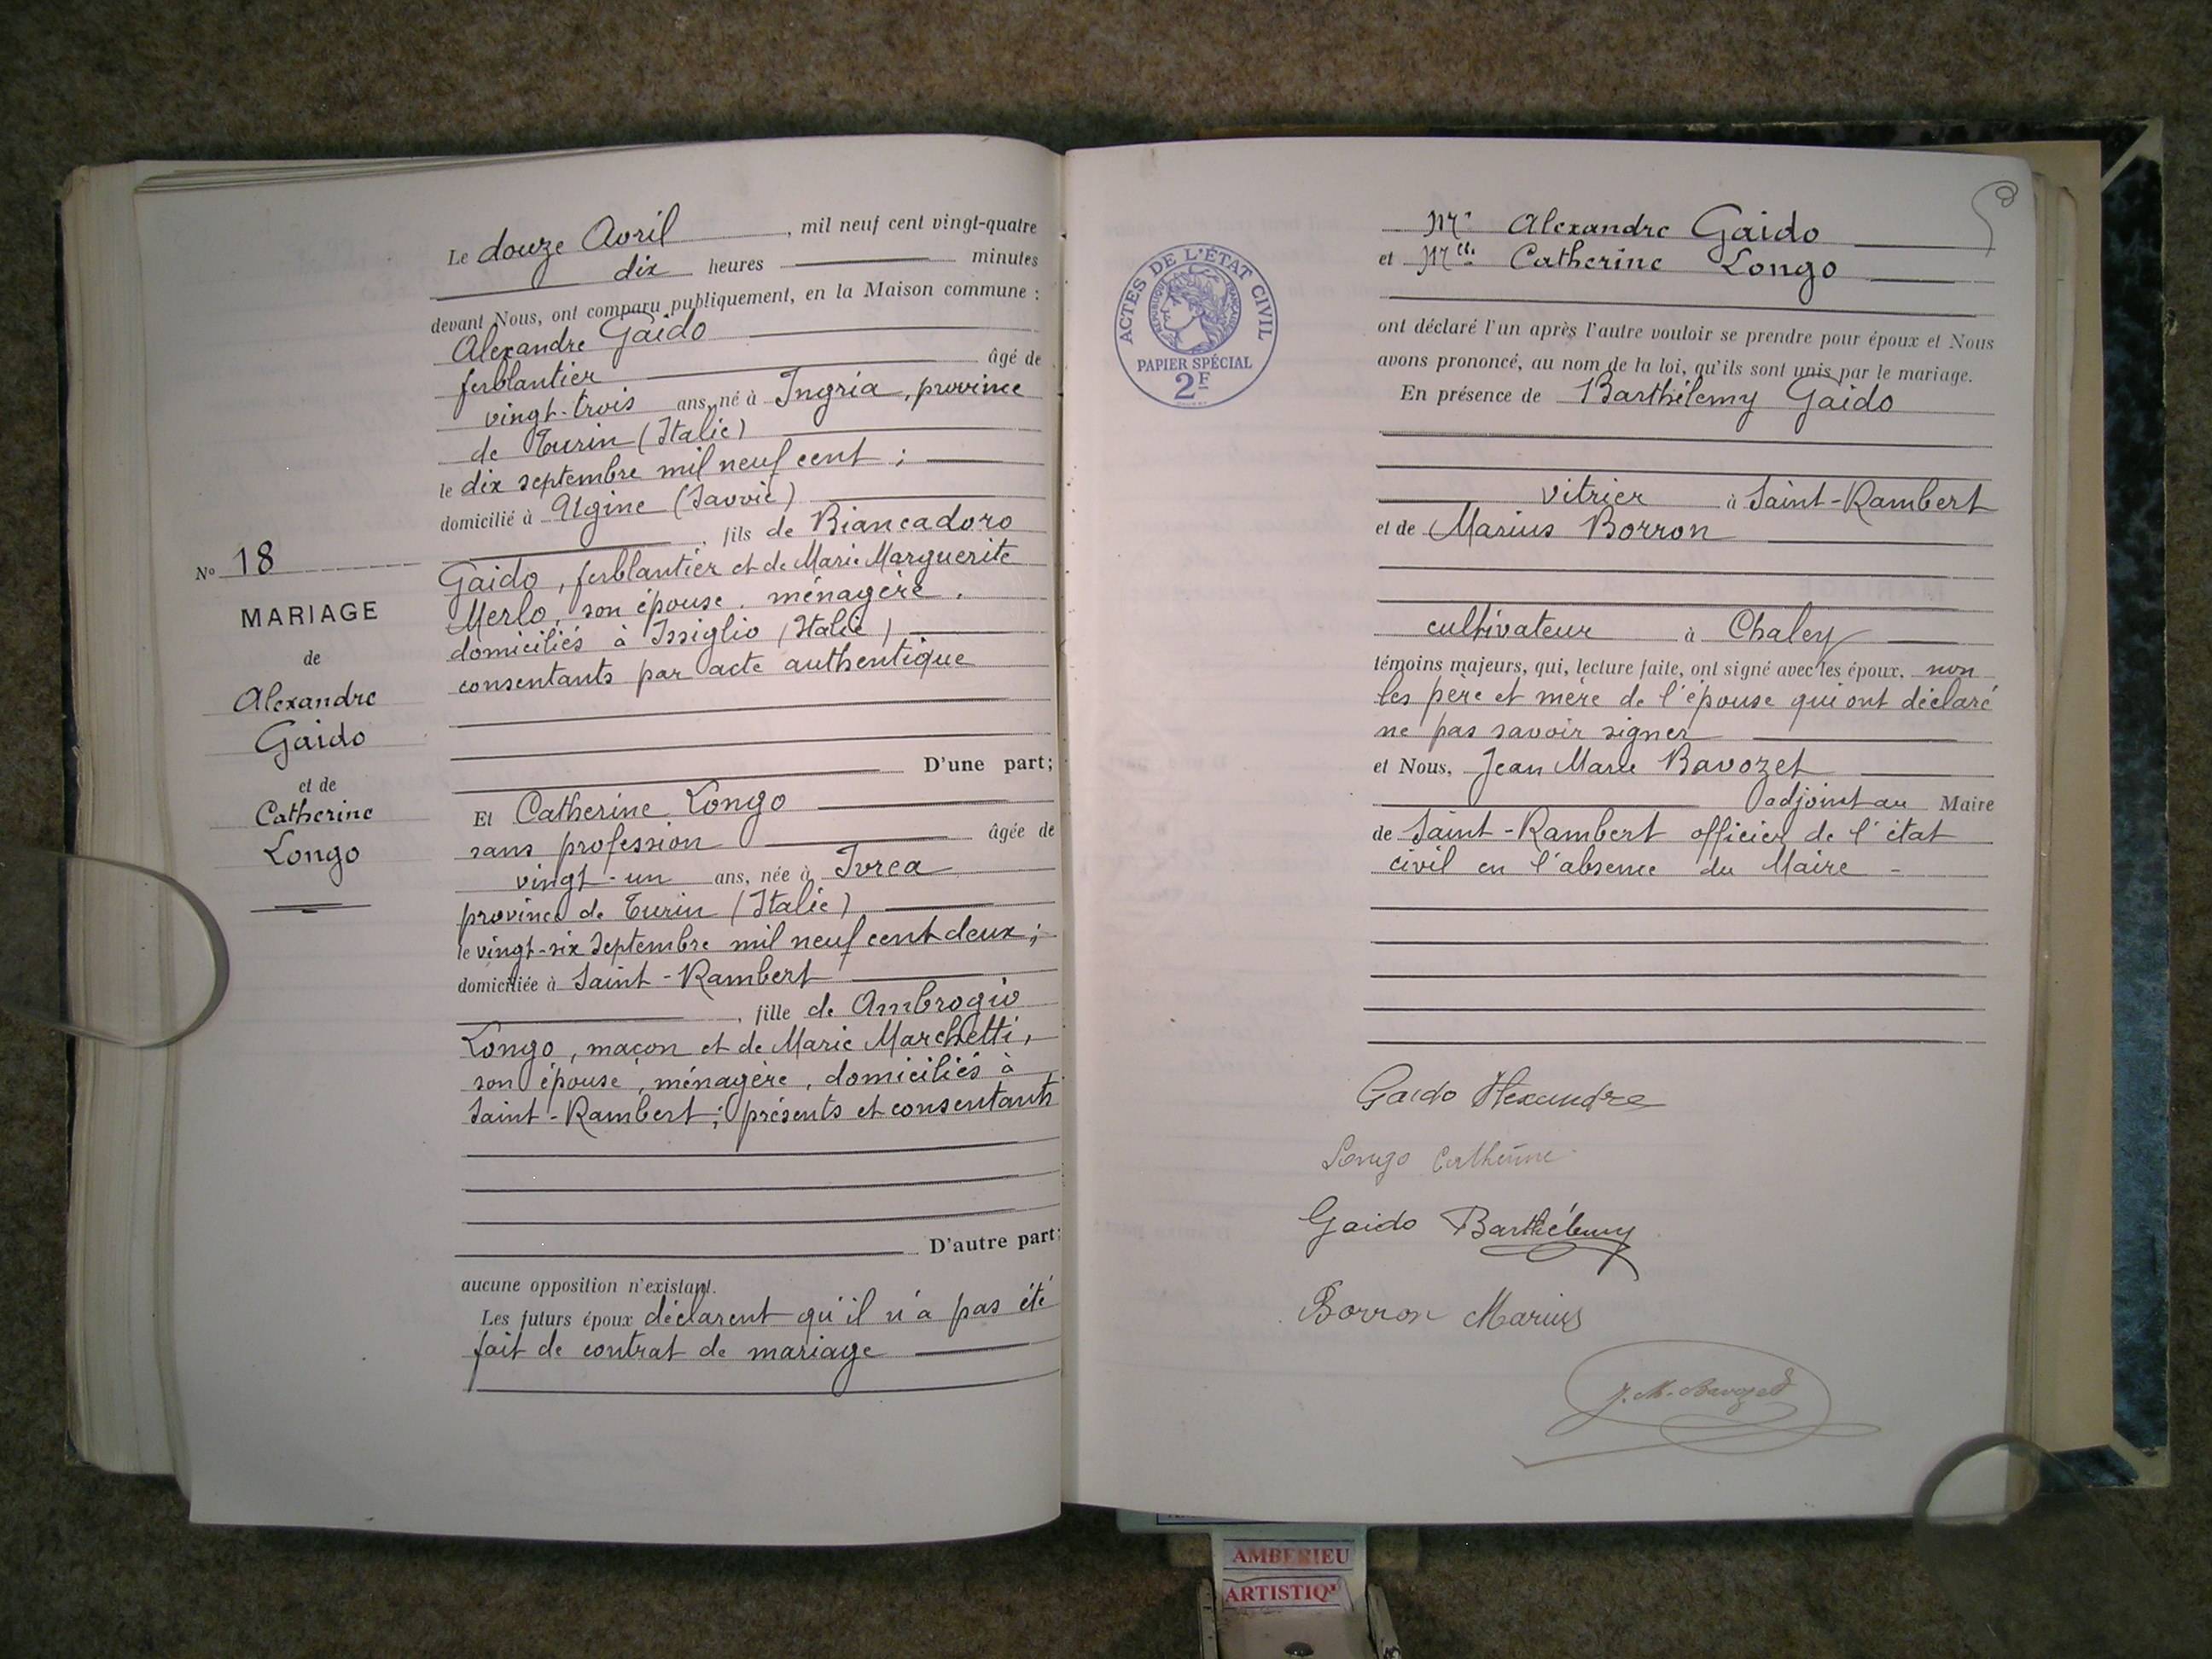 Le douze Avril, mil neuf cent vingt-quatre
dix heures minutes
devant Nous, ont comparu publiquement, en la Maison commune :
Alexandre Gaido
ferblantier âgé de
vingt-trois ans, né à Ingria, province
de Turin (Italie)
le dix septembre mil neuf cent ;
domicilié à (Savoie)
, fils de Biancadoro
Gaido, ferblantier et de Marie Marguerite
Merlo, son épouse, ménagère,
domiciliés à Issiglio (Italie)
consentants par acte authentique
D'une part;
Et Catherine Longo
sans profession âgée de
vingt-un ans, née à Ivrea
province de Turin (Italie)
le vingt-six Septembre mil neuf cent deux ;
domiciliée à Saint-Rambert
, fille de Ambrogio
Longo, maçon et de Marie Marchetti,
son épouse, ménagère, domiciliés à
Saint-Rambert ; présents et consentants
D'autre part;
aucune opposition n'existant.
Les futurs époux déclarent qu'il n'a pas été
fait de contrat de mariage
No 18
MARIAGE
de
Alexandre
Gaido
et de
Catherine
Longo
ACTES DE L'ÉTAT CIVIL
RÉPUBLIQUE FRANÇAISE
PAPIER SPÉCIAL
2F
Mr Alexandre Gaido
et Melle Catherine Longo
ont déclaré l'un après l'autre vouloir se prendre pour époux et Nous
avons prononcé, au nom de la loi, qu'ils sont unis par le mariage.
En présence de Barthélemy Gaido
vitrier à Saint-Rambert
et de Marius Borron
cultivateur à Chaley
témoins majeurs, qui, lecture faite, ont signé avec les époux, non
les père et mère de l'épouse qui ont déclaré
ne pas savoir signer
et Nous, Jean Marie Bavozet
adjoint au Maire
de Saint-Rambert officier de l'état
civil en l'absence du Maire -
Gaido Alexandre
Longo Catherine
Gaido Barthélemy
Borron Marius
J. M. Bavozet
AMBERIEU
ARTISTIQ